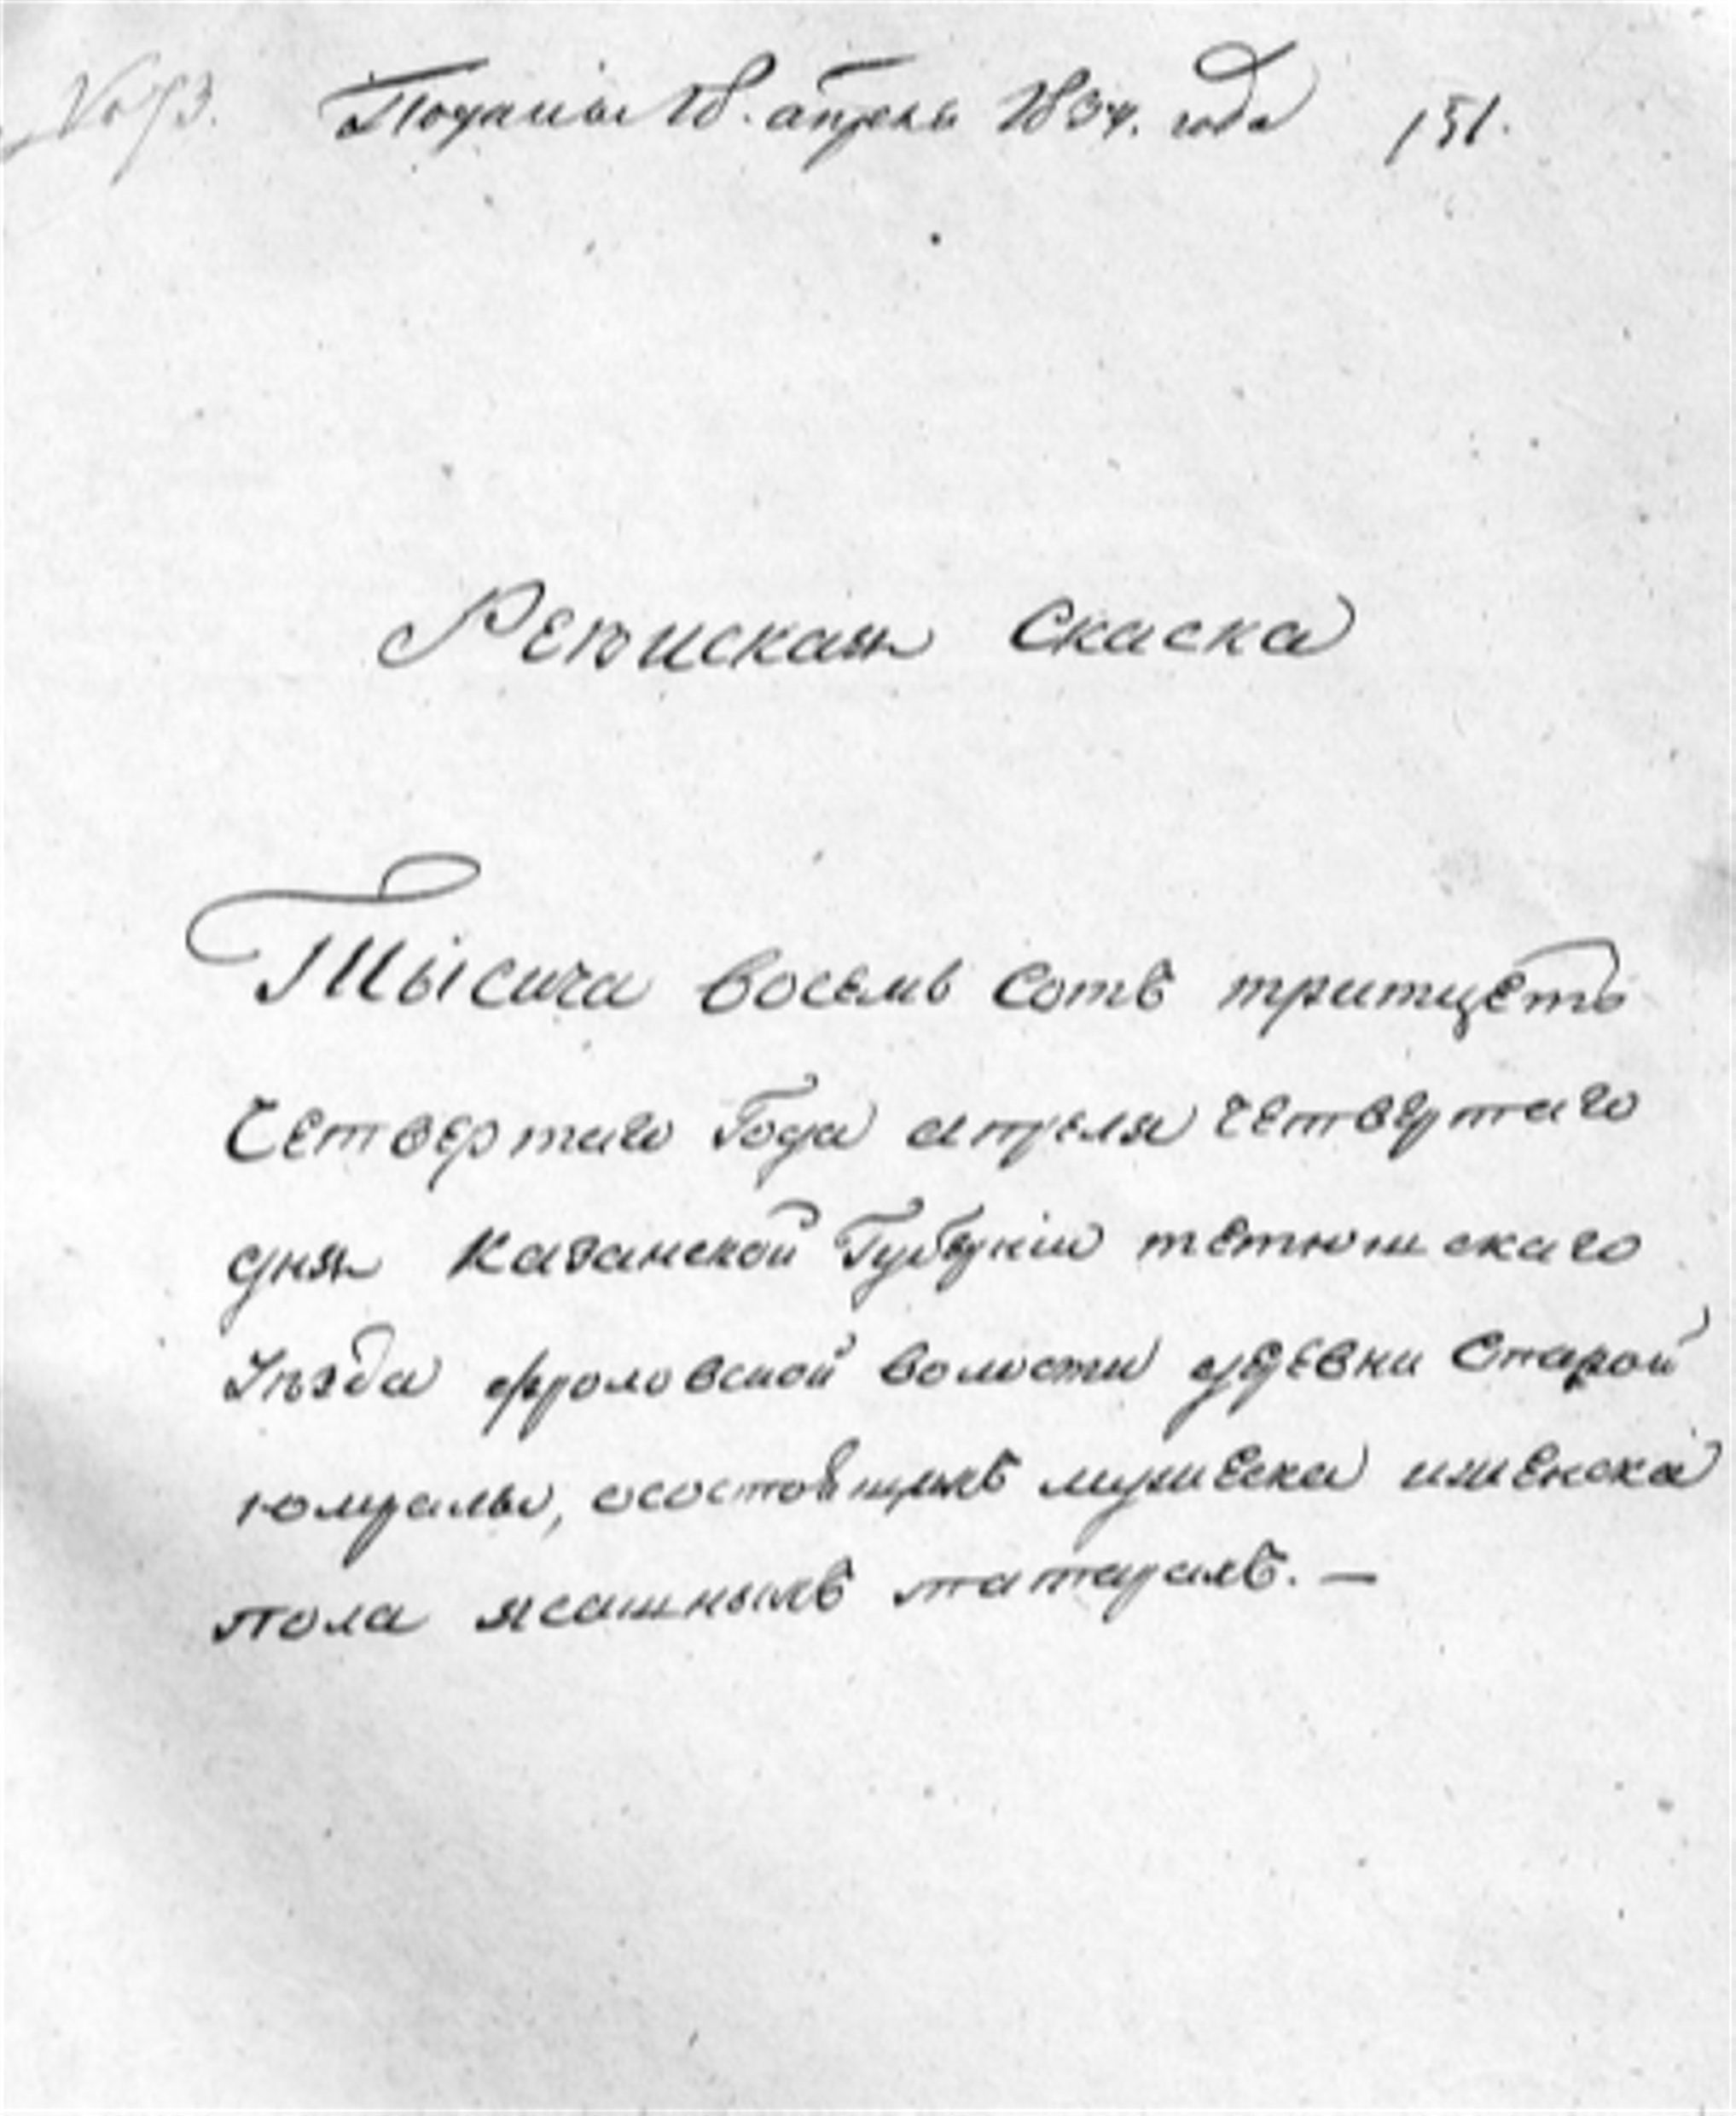 Поданы 18. апреля 1834. года 151.
Ревиская Скаска
Тысича восемь Сотъ тритцеть
Четвертаго Года апреля четвертаго
дня Казанской Губерніи тетюшскаго
Уѣзда фроловской волости деревни Старой
юмралы, осостоящихъ мужеска иженска
пола ясашныхъ татарахъ. —